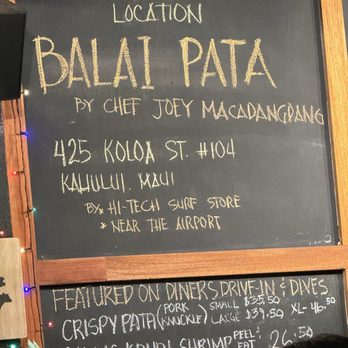 LOCATION
BALAI PATA
BY CHEF JOEY MACADANGDANG
425 KOLOA ST. #104
KAHULUI. MAUI
BY: HI-TECH SURF STORE
* NEAR THE AIRPORT
FEATURED ON DINERS, DRIVE-IN & DIVES
CRISPY PATA (PORK KNUCKLE) SMALL $35.50
LARGE $39.50 XL- 46.50
SHRIMP PEEL & EAT 26.50